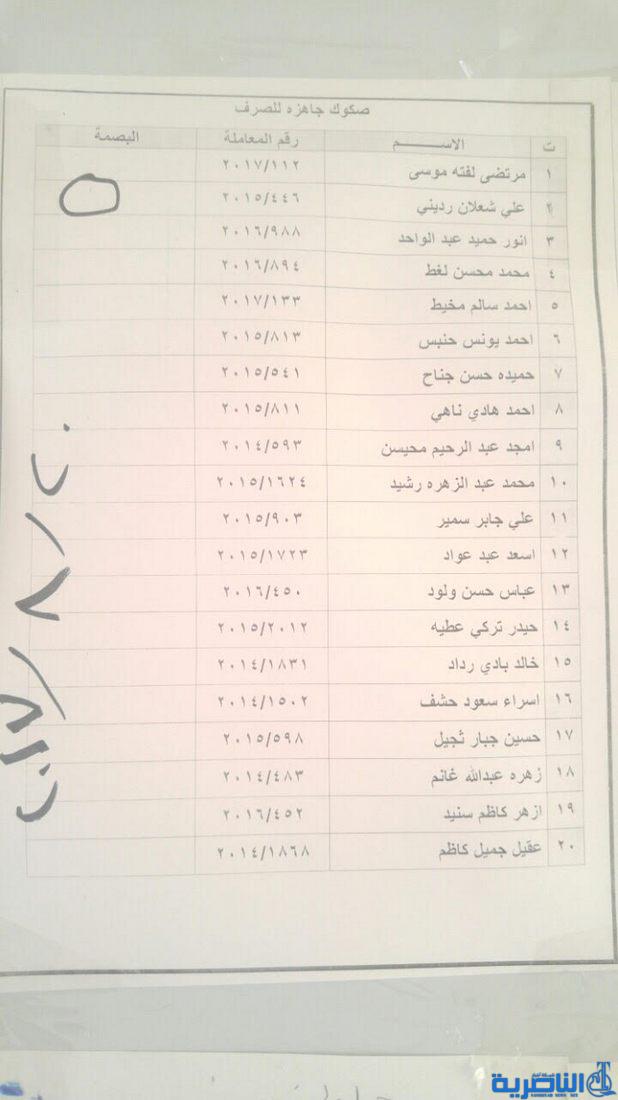 صكوك جاهزه للصرف
ت الاســـــم رقم المعاملة البصمة
١ مرتضى لفته موسى ٢٠١٧/١١٢
٢ علي شعلان رديني ٢٠١٥/٤٤٦
٣ انور حميد عبد الواحد ٢٠١٦/٩٨٨
٤ محمد محسن لغط ٢٠١٦/٨٩٤
٥ احمد سالم مخيط ٢٠١٧/١٣٣
٦ احمد يونس حنبس ٢٠١٥/٨١٣
٧ حميده حسن جناح ٢٠١٥/٥٤١
٨ احمد هادي ناهي ٢٠١٥/٨١١
٩ امجد عبد الرحيم محيسن ٢٠١٤/٥٩٣
١٠ محمد عبد الزهره رشيد ٢٠١٥/١٦٢٤
١١ علي جابر سمير ٢٠١٥/٩٠٣
١٢ اسعد عبد عواد ٢٠١٥/١٧٢٣
١٣ عباس حسن ولود ٢٠١٦/٤٥٠
١٤ حيدر تركي عطيه ٢٠١٥/٢٠١٢
١٥ خالد بادي رداد ٢٠١٤/١٨٣١
١٦ اسراء سعود حشف ٢٠١٤/١٥٠٢
١٧ حسين جبار ثجيل ٢٠١٥/٥٩٨
١٨ زهره عبدالله غانم ٢٠١٤/٤٨٣
١٩ ازهر كاظم سنيد ٢٠١٦/٤٥٢
٢٠ عقيل جميل كاظم ٢٠١٤/١٨٦٨
٢٠١٧/٨/٢٠
الناصرية